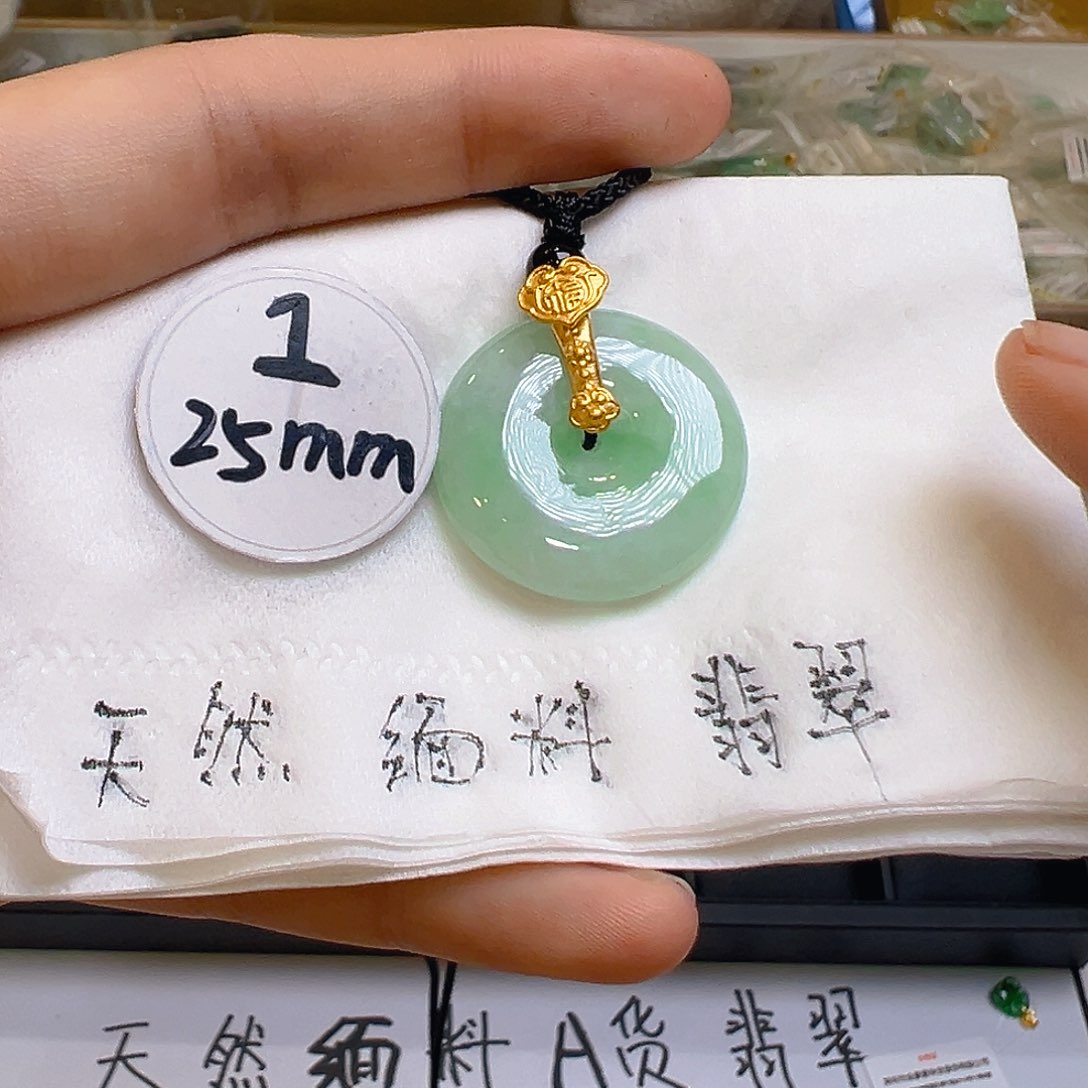 1
25mm
福
天然 缅料 翡翠
天然缅料A货翡翠